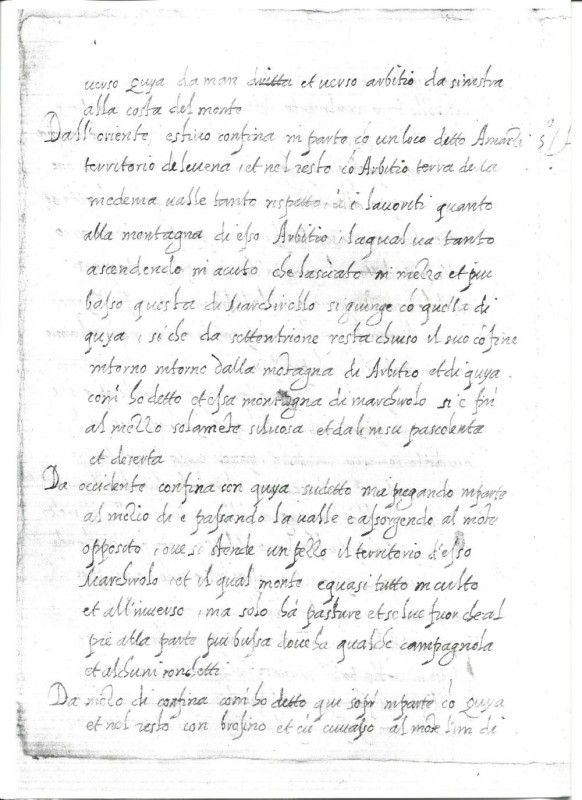 verso Quya da man dritta et verso arbitio da sinestra
alla costa del monte
Dall'oriente, estivo confina in parte cō un loco detto Amarti
territorio de levena, et nel resto cō Arbitio terra de la
medema valle tanto rispetto à i lavoriti quanto
alla montagna di esso Arbitio, laqual va tanto
ascendendo in acuto che lasciato in mezzo et piu
basso questa di Marchirollo si giunge cō quella di
quya, si che da settentrione resta chiuso il suo cōfine
intorno intorno dalla mōtagna di Arbitio et di quya
com'ho detto et essa montagna di marchirolo si è fin
al mezzo solamēte silvosa et da li in su pascolenta
et deserta
Da occidente confina con quya sudetto ma piegando inparte
al mezio di e passando la valle e assorgendo al mōte
opposito, ove si stende un pezzo il territorio d'esso
Marchirolo, et il qual monte e quasi tutto inculto
et all'inverso, ma solo hà pasture et selve fuor che al
piè alla parte piu bassa dove ha qualche campagnola
et alchuni ronchetti
Da mezo di confina com'ho detto qui sopra inparte cō Quya
et nel resto con brosino et cō cuvasso al mōte